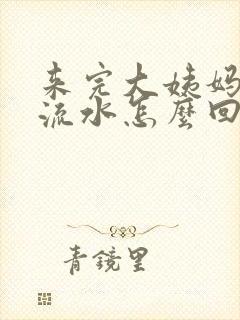 来完大姨妈
流水怎麽回
青镜里